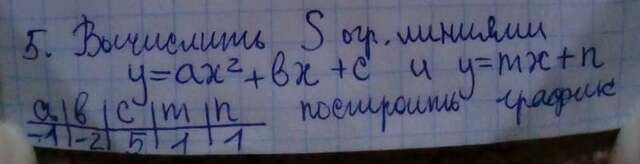 5. Вычислить S огр. линиями
y=ax²+bx+c и y=mx+n
a | b | c | m | n построить график
-1 | -2 | 5 | 1 | 1